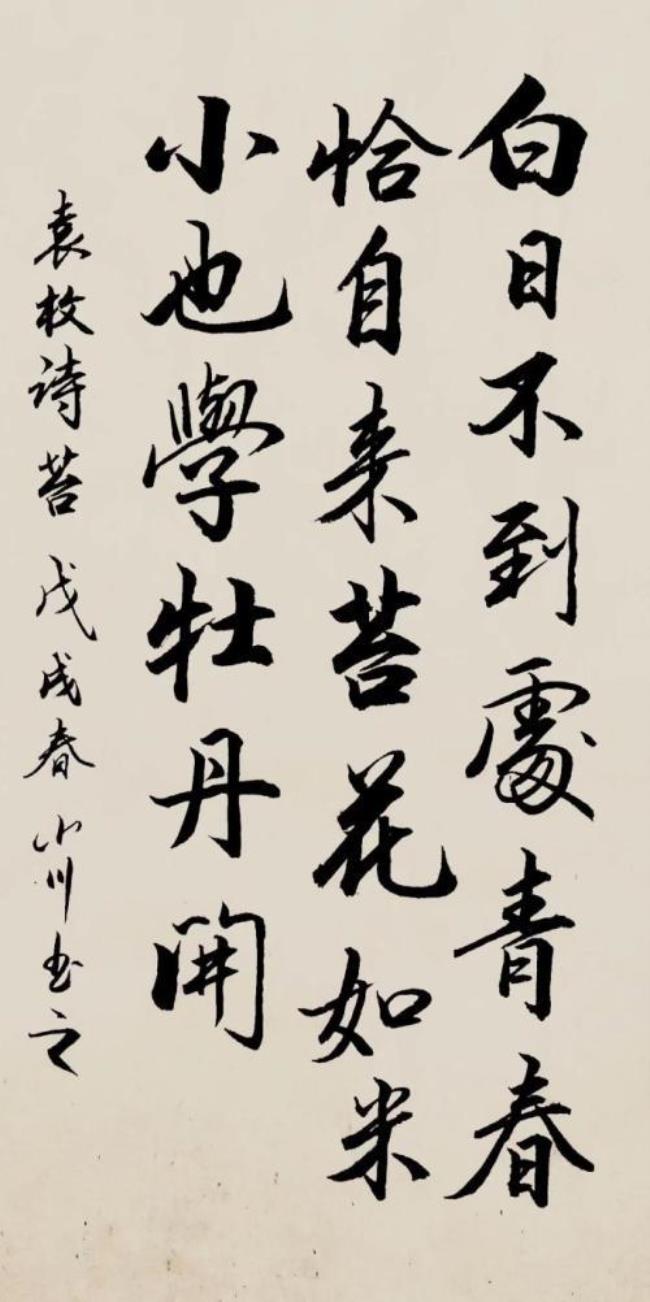 白日不到處青春
恰自来苔花如米
小也學牡丹開
袁枚诗苔 戊戌春 小川书之